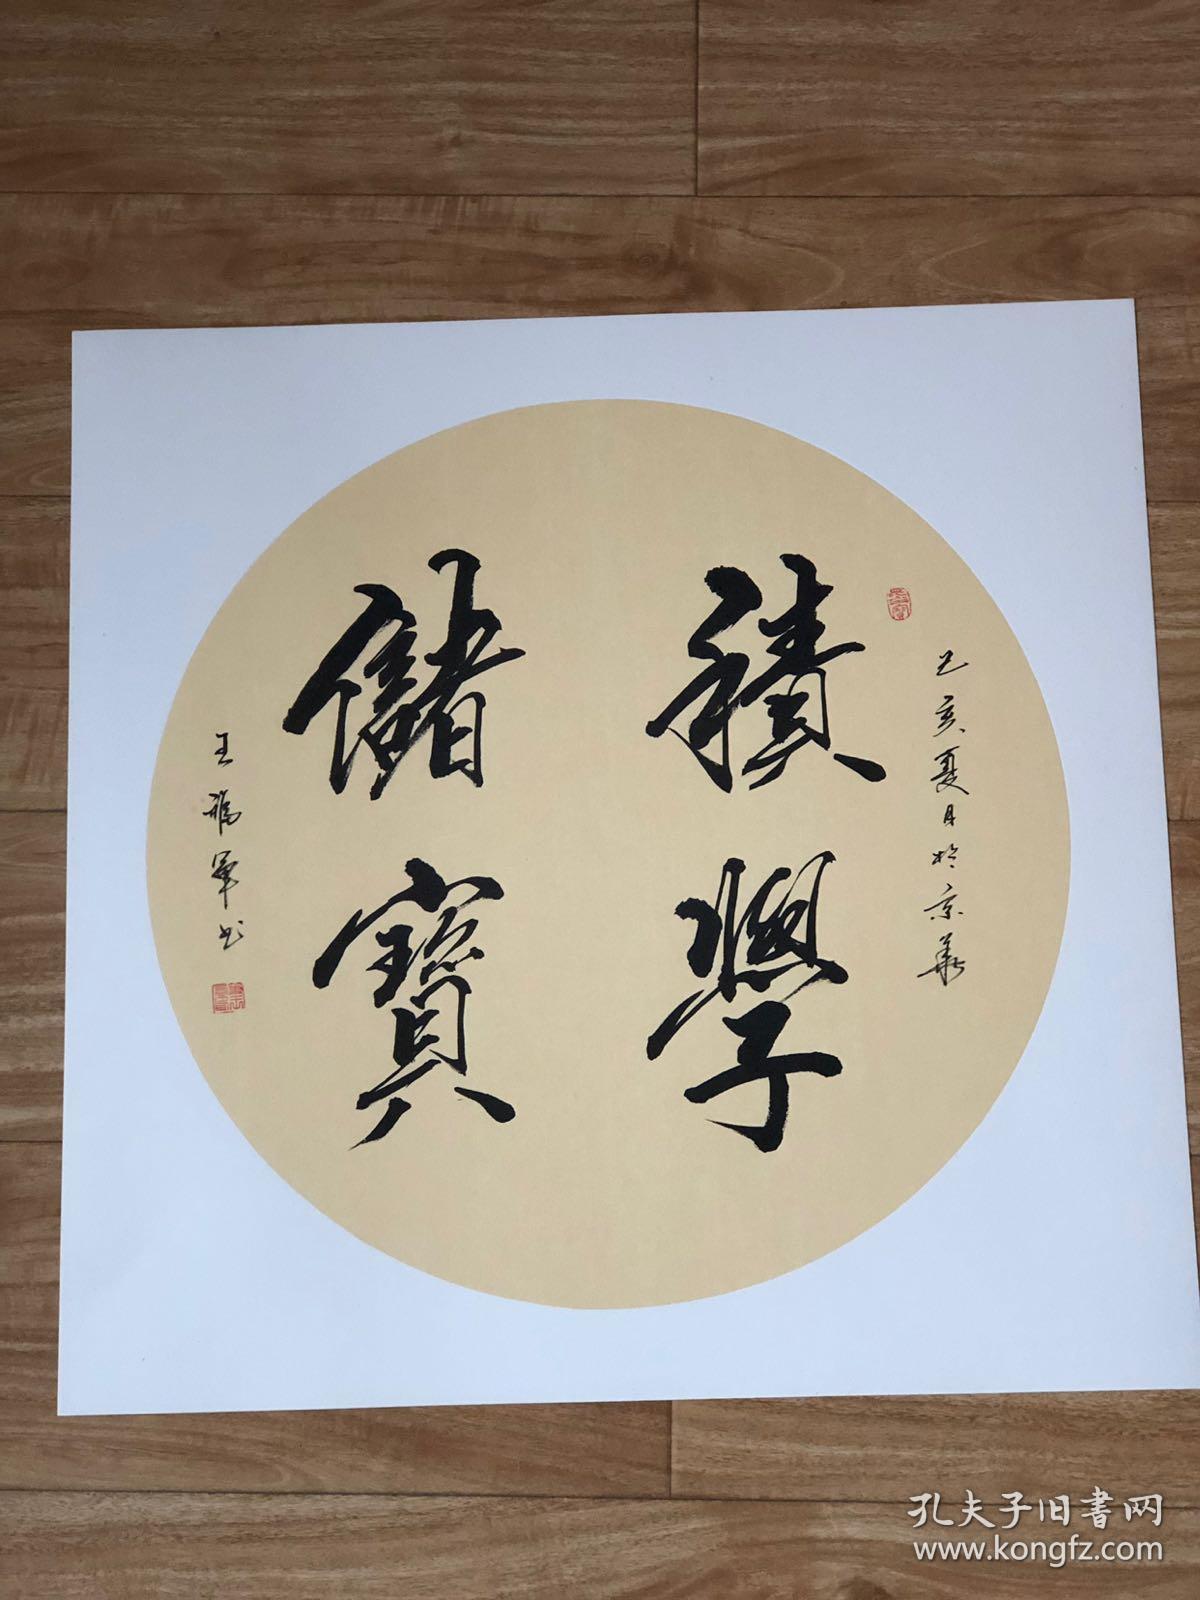 己亥夏月於京華
積學
儲寶
王福軍书
孔夫子旧书网
www.kongfz.com